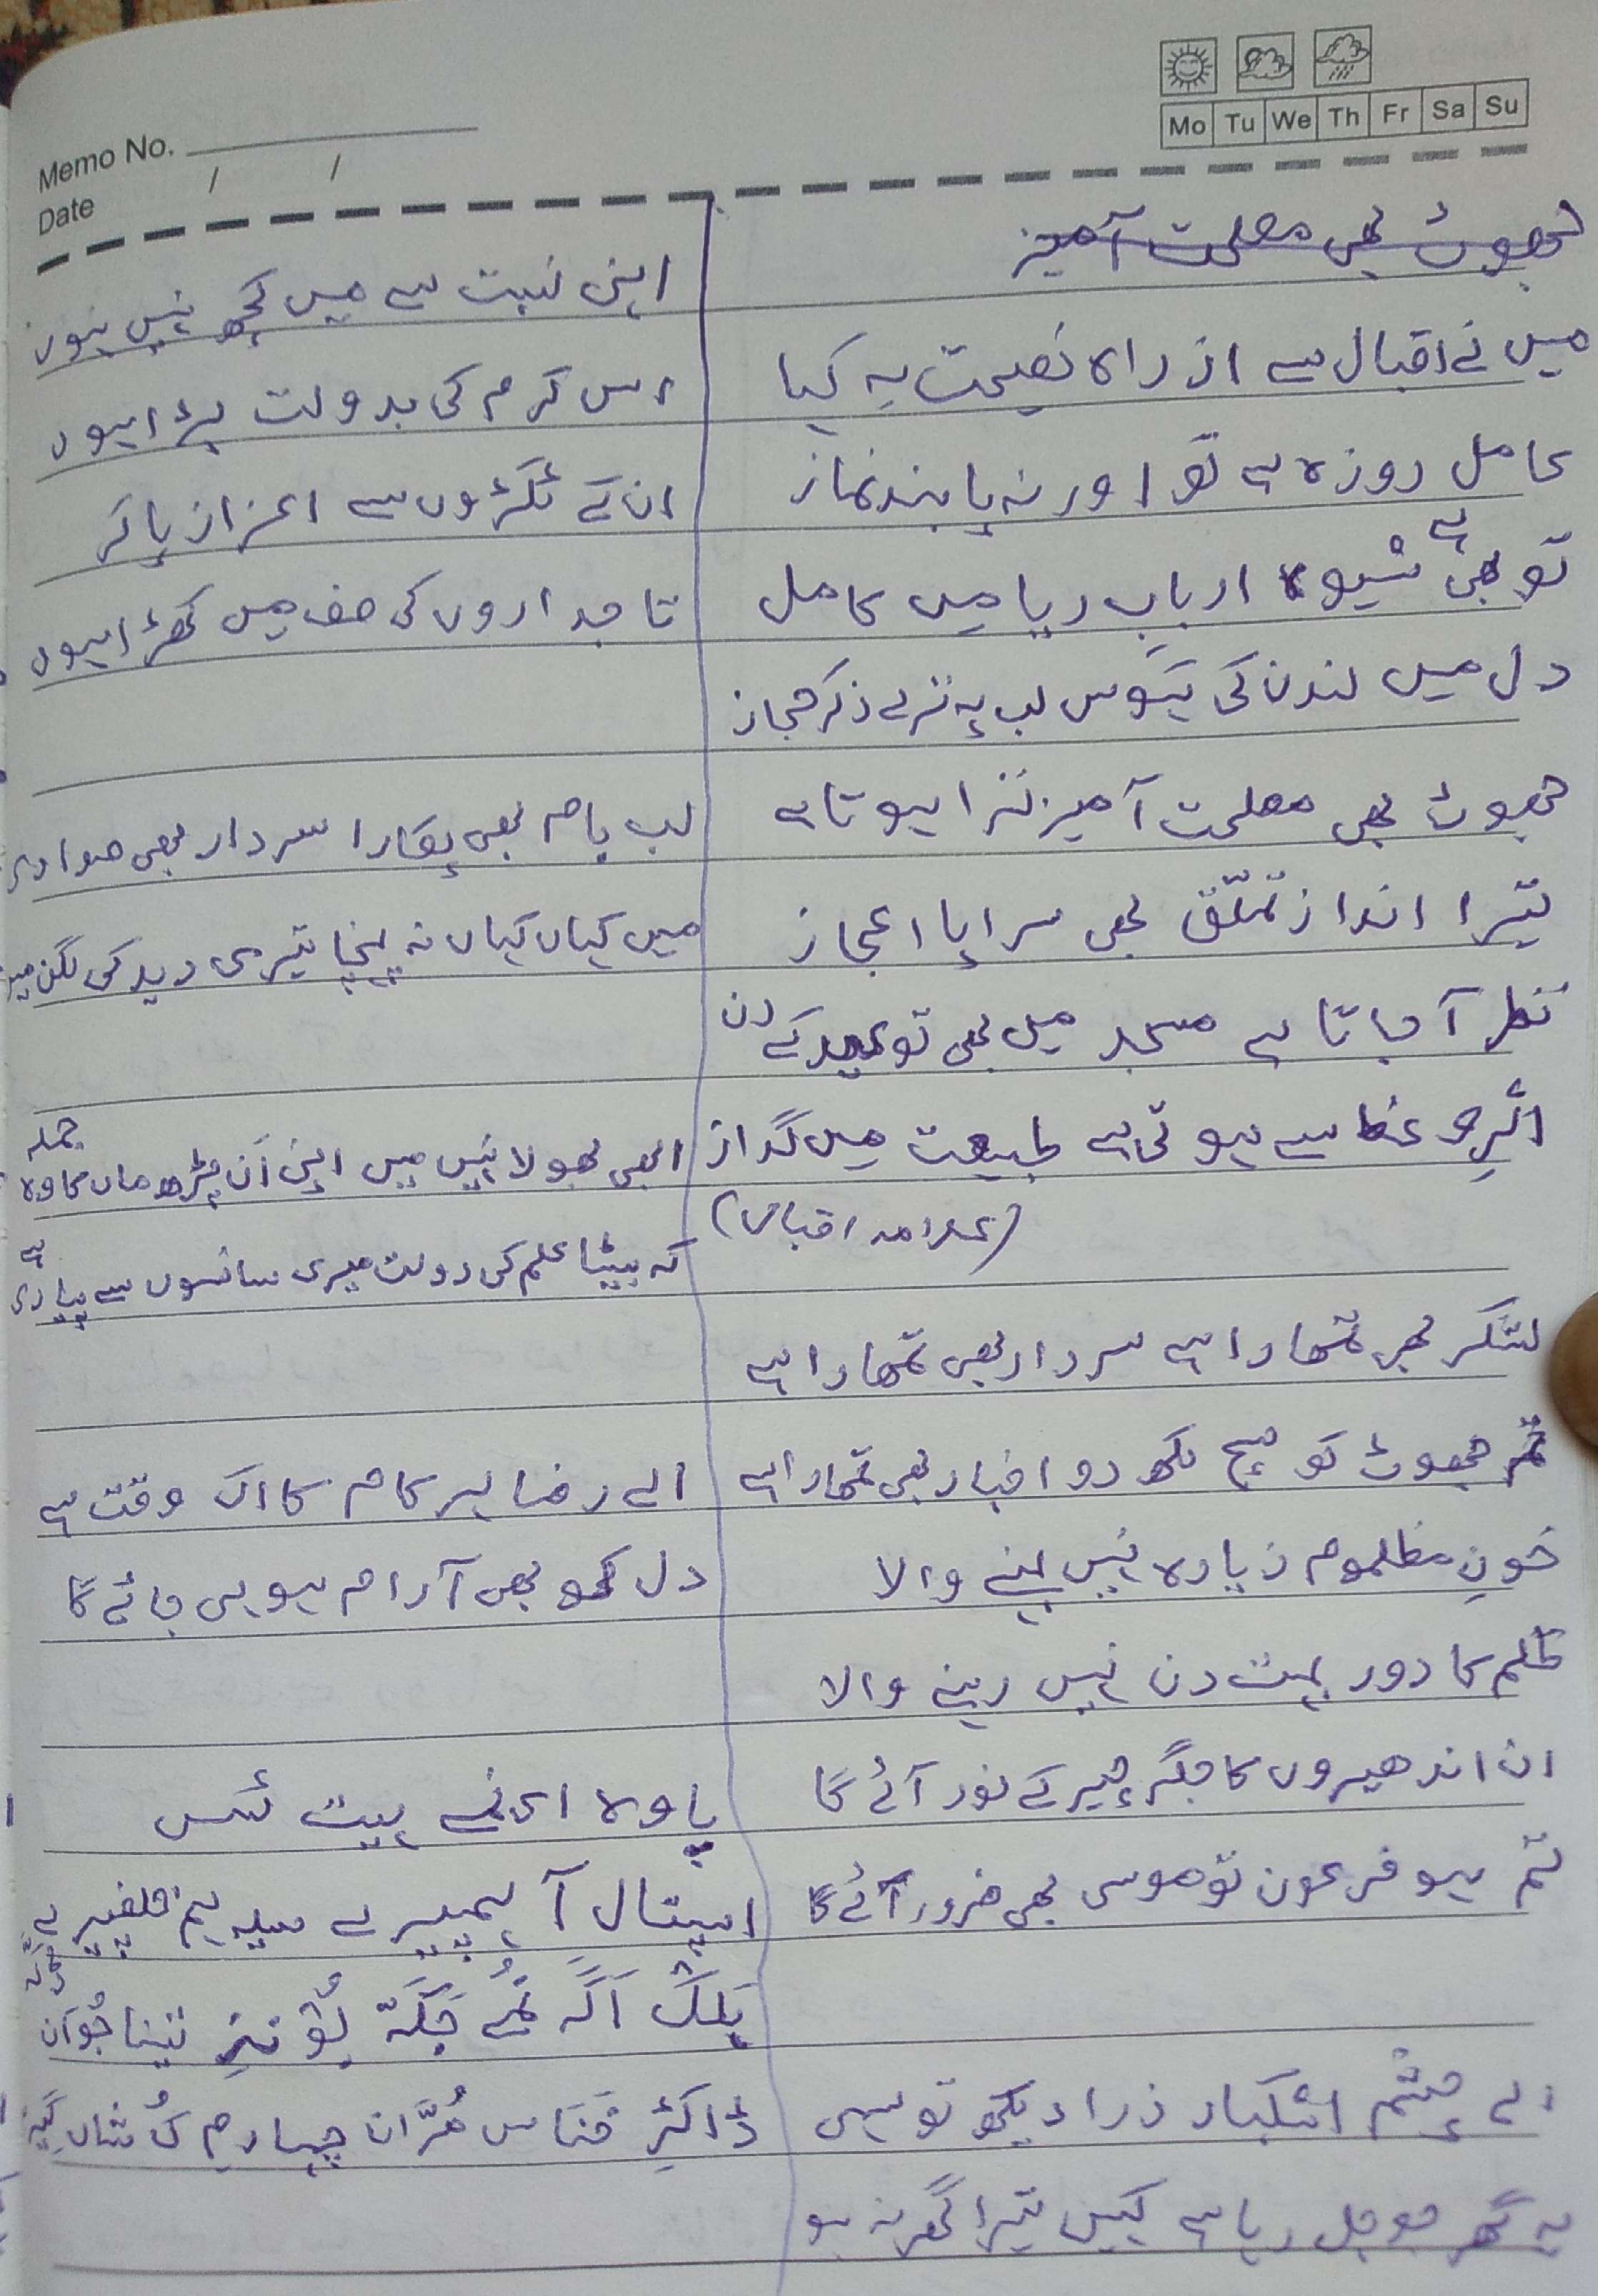 Memo No.
Date / /
Mo Tu We Th Fr Sa Su
جھوٹ بھی مصلحت آمیز
میں نے اقبال سے از راہ نصیحت یہ کہا
عامل روزہ ہے تو اور نہ پابند نماز
تو بھی ہے شیوہ ارباب ریا میں کامل
دل میں لندن کی ہوس لب پہ ترے ذکر حجاز
جھوٹ بھی مصلحت آمیز ترا ہوتا ہے
تیرا انداز تملّق بھی سراپا اعجاز
نظر آ جاتا ہے مسجد میں بھی تو عید کے دن
اثرِ وعظ سے ہوتی ہے طبیعت میں گداز
(علامہ اقبال)
لشکر بھی تمھارا ہے سردار بھی تمھارا ہے
تم جھوٹ کو سچ لکھ دو اخبار بھی تمھارا ہے
خونِ مظلوم زیادہ نہیں بہنے والا
ظلم کا دور بہت دن نہیں رہنے والا
ان اندھیروں کا جگر چیر کے نور آئے گا
تم ہو فرعون تو موسی بھی ضرور آئے گا
اے چشم اشکبار ذرا دیکھ تو سہی
یہ گھر جو جل رہا ہے کہیں تیرا گھر نہ ہو
اپنی نسبت سے میں کچھ نہیں ہوں
اس کرم کی بدولت بڑا ہوں
ان کے ٹکڑوں سے اعزاز پا کر
تاجداروں کی صف میں کھڑا ہوں
لب بام بھی پکارا سردار بھی صدا دی
میں کہاں کہاں نہ پہنچا تیری دید کی لگن میں
ابھی بھولا نہیں میں اپنی اَن پڑھ ماں کا وہ جملہ
کہ بیٹا علم کی دولت میری سانسوں سے پیاری ہے
اے رضا ہر کام کا اک وقت ہے
دل کو بھی آرام ہو ہی جائے گا
ہیت ئس
اسپتال آ
ڈاکٹر